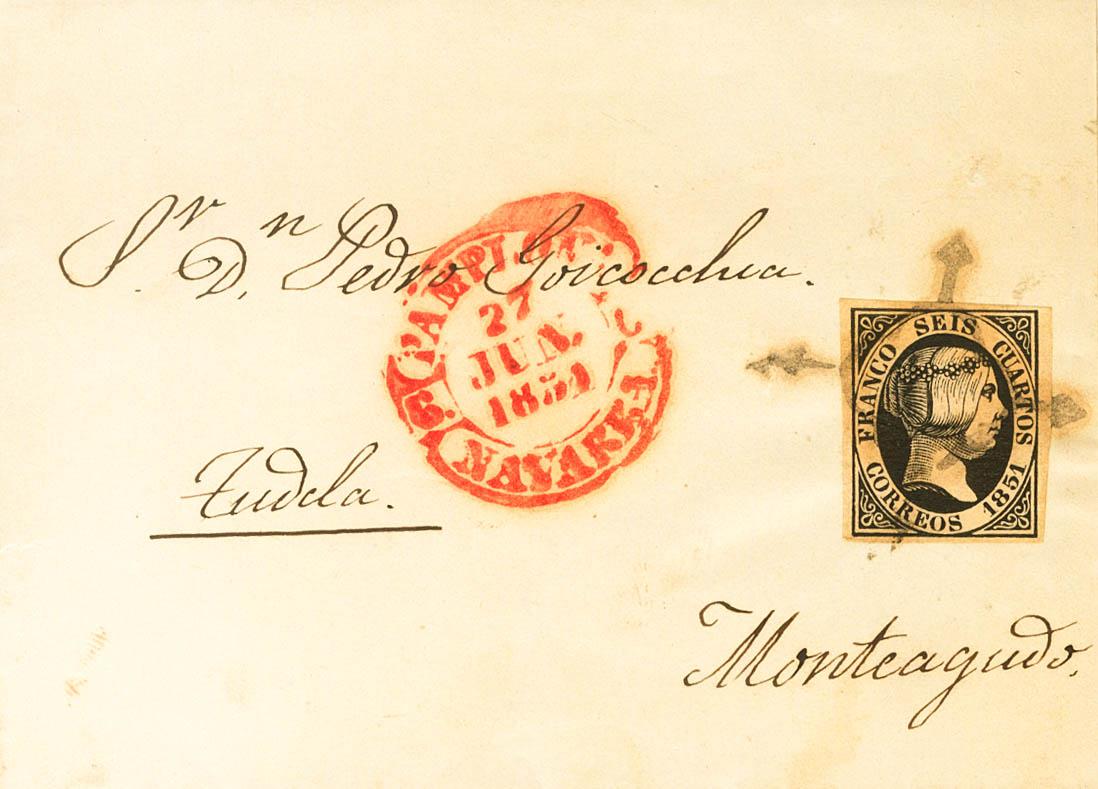 Sr. Dn. Pedro Goicocchea.
PAMPLONA
27
JUN.
1851
NAVARRA
FRANCO SEIS CUARTOS
CORREOS 1851
Tudela.
Monteagudo.